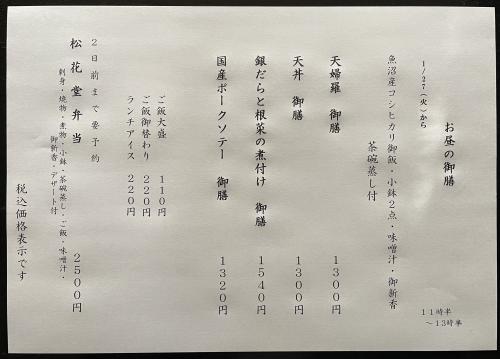 お昼の御膳
11時半
～13時半
1/27(火)から
魚沼産コシヒカリ御飯・小鉢2点・味噌汁・御新香
茶碗蒸し付
天婦羅 御膳 1300円
天丼 御膳 1300円
銀だらと根菜の煮付け 御膳 1540円
国産ポークソテー 御膳 1320円
ご飯大盛 110円
ご飯御替わり 220円
ランチアイス 220円
2日前まで要予約
松花堂弁当 2500円
刺身・焼物・煮物・小鉢・茶碗蒸し・ご飯・味噌汁・
御新香・デザート付
税込価格表示です